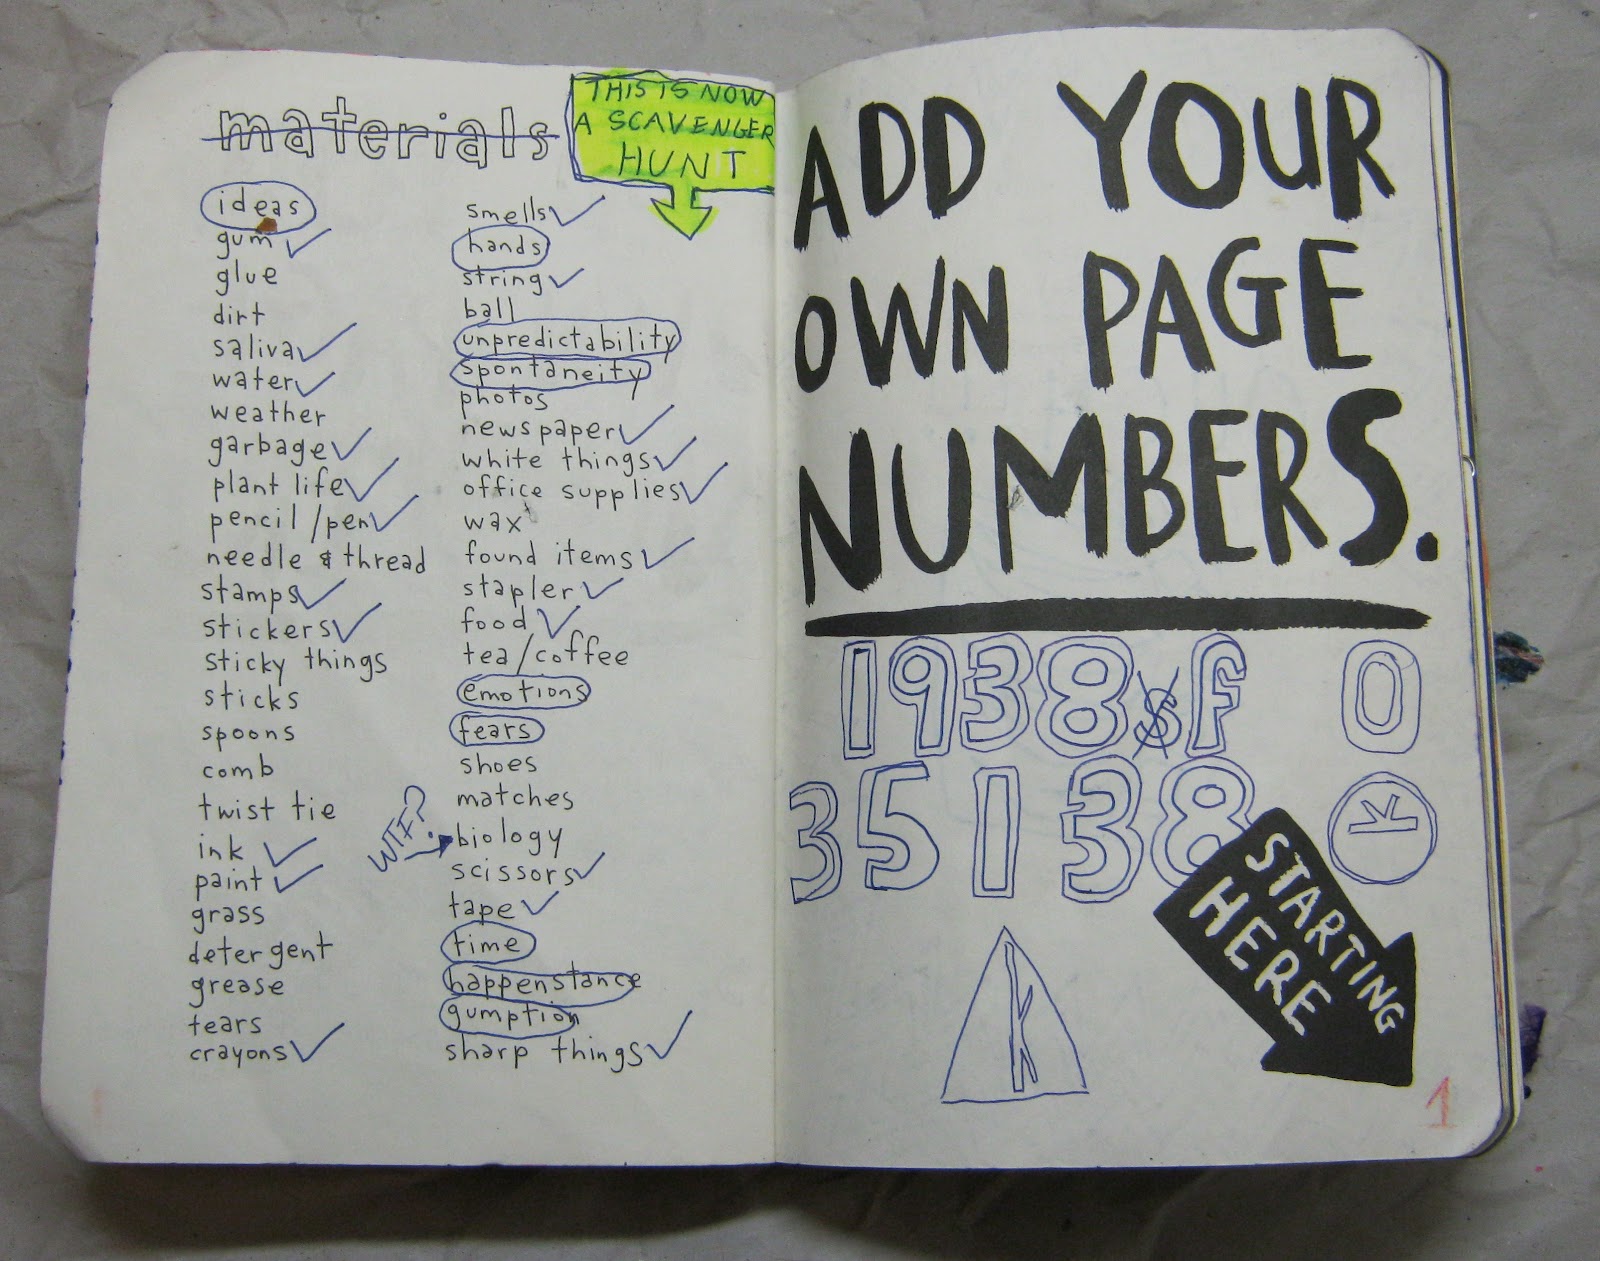 materials
THIS IS NOW
A SCAVENGER
HUNT
ideas
gum
glue
dirt
saliva
water
weather
garbage
plant life
pencil/pen
needle & thread
stamps
stickers
sticky things
sticks
spoons
comb
twist tie
ink
paint
grass
detergent
grease
tears
crayons
smells
hands
string
ball
unpredictability
spontaneity
photos
newspaper
white things
office supplies
wax
found items
stapler
food
tea/coffee
emotions
fears
shoes
matches
WTF?
biology
scissors
tape
time
happenstance
gumption
sharp things
ADD YOUR
OWN PAGE
NUMBERS.
1938 $ f 0
35138 K
STARTING
HERE
1